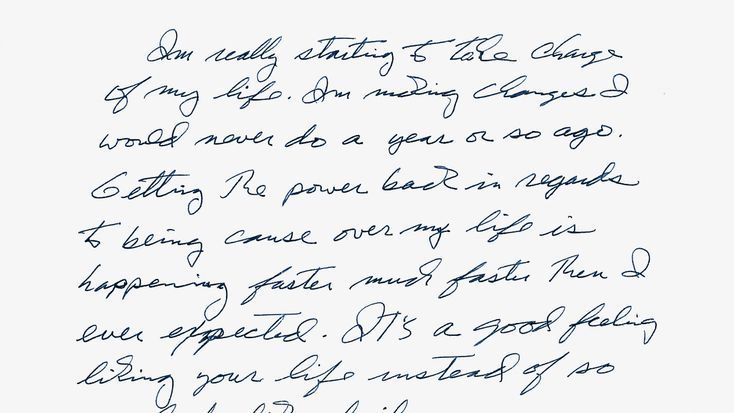 Im really starting to take charge
of my life. Im making changes I
would never do a year or so ago.
Getting the power back in regards
to being cause over my life is
happening faster much faster then I
ever expected. It's a good feeling
liking your life instead of so